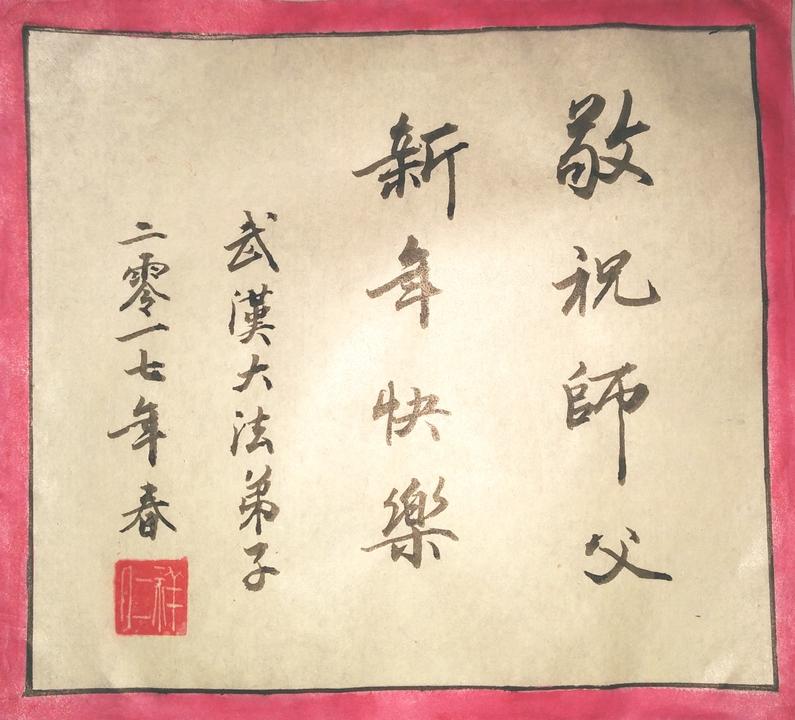 敬祝師父
新年快樂
武漢大法弟子
二零一七年春